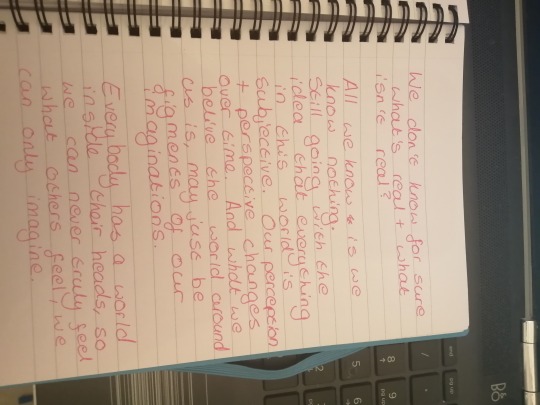 We don't know for sure
what's real + what
isn't real?
All we know is we
know nothing.
Still going with the
idea that everything
in this world is
subjective. Our perception
+ perspective changes
over time. And what we
belive the world around
us is, may just be
figments of our
imaginations.
Everybody has a world
inside their heads, so
we can never truly feel
what others feel, we
can only imagine.